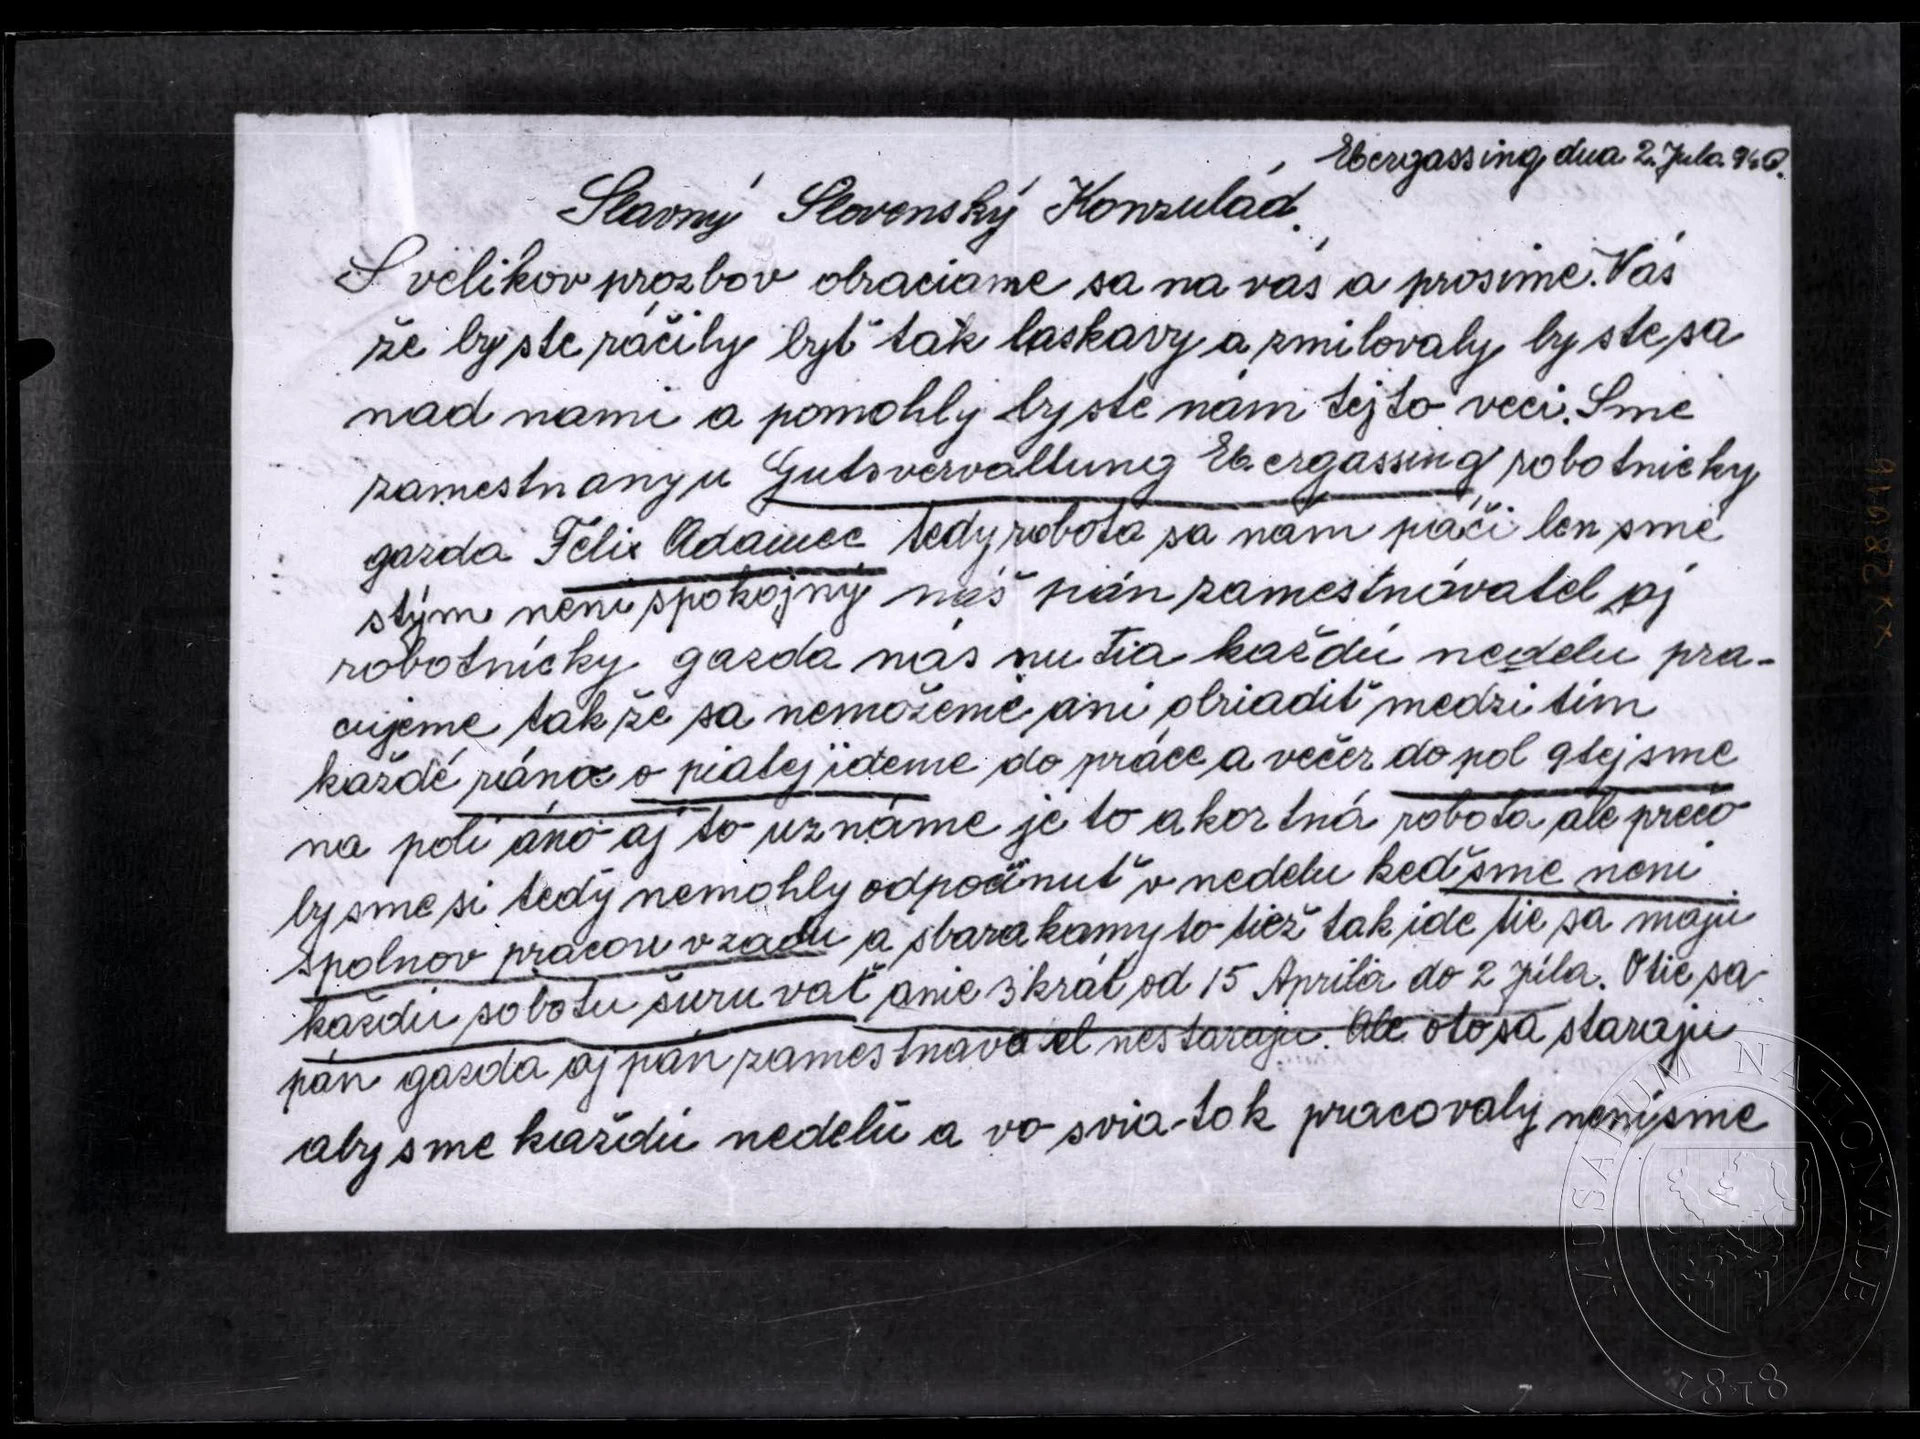 Ebergassing dna 2. Jula 940.
Slavný Slovenský Konzulád.
S velikov prozbov obraciame sa na vás a prosime. Vás
že by ste ráčily byť tak laskavy a zmilovaly by ste sa
nad nami a pomohly by ste nám tejto veci. Sme
zamestnany u Gutsvervaltung Ebergassing robotnicky
gazda Felix Adamec tedy robota sa nám páči len sme
stým neni spokojný náš pán zamestnávatel aj
robotnícky gazda nás nutia každú nedelu pra-
cujeme tak že sa nemožeme ani obriadiť medzi tím
každé ráno o piatej ideme do práce a večer do pol 9tej sme
na poli áno aj to uznáme je to akortná robota ale prečo
by sme si tedy nemohly odpočinuť v nedelu keď sme neni
spolnov pracou vzadu a sbarakamy to tiež tak ide tie sa maju
každú sobotu šuruvať anie 3 krát od 15 Aprila do 2 Júla. O tie sa
pán gazda aj pán zamestnavatel nestaraju. Ale oto sa staraju
aby sme každú nedelu a vo sviatok pracovaly neni sme
MUSAEUM NATIONALE
1818